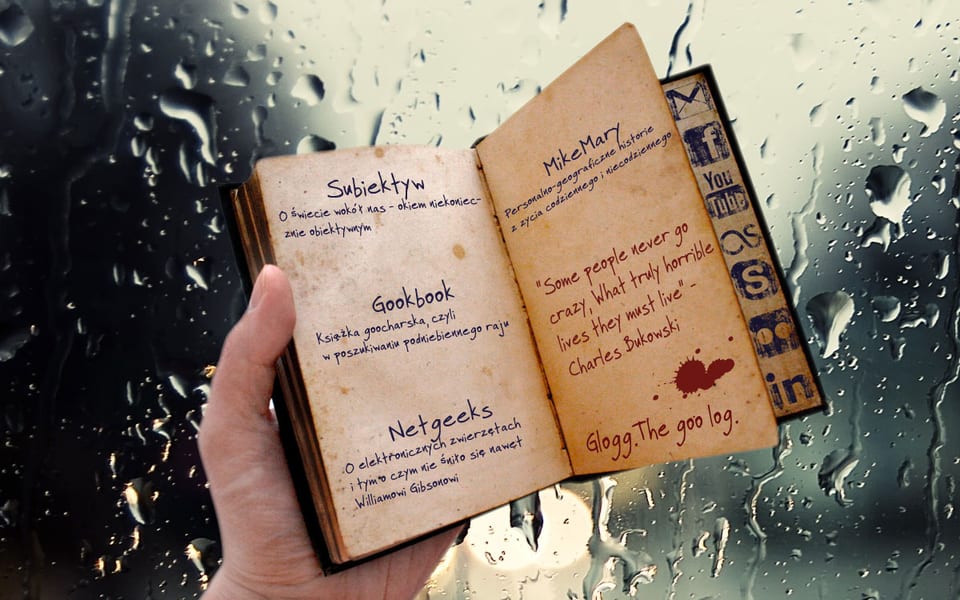 Subiektyw
O świecie wokół nas - okiem niekoniec-
znie obiektywnym
Gookbook
Książka goocharska, czyli
w poszukiwaniu podniebiennego raju
Netgeeks
O elektronicznych zwierzętach
i tym o czym nie śniło się nawet
Williamowi Gibsonowi
MikeMary
Personalno-geograficzne historie
z zycia codziennego i niecodziennego
"Some people never go
crazy, What truly horrible
lives they must live" -
Charles Bukowski
Glogg.The goo log.
f
You
Tube
as
S
in